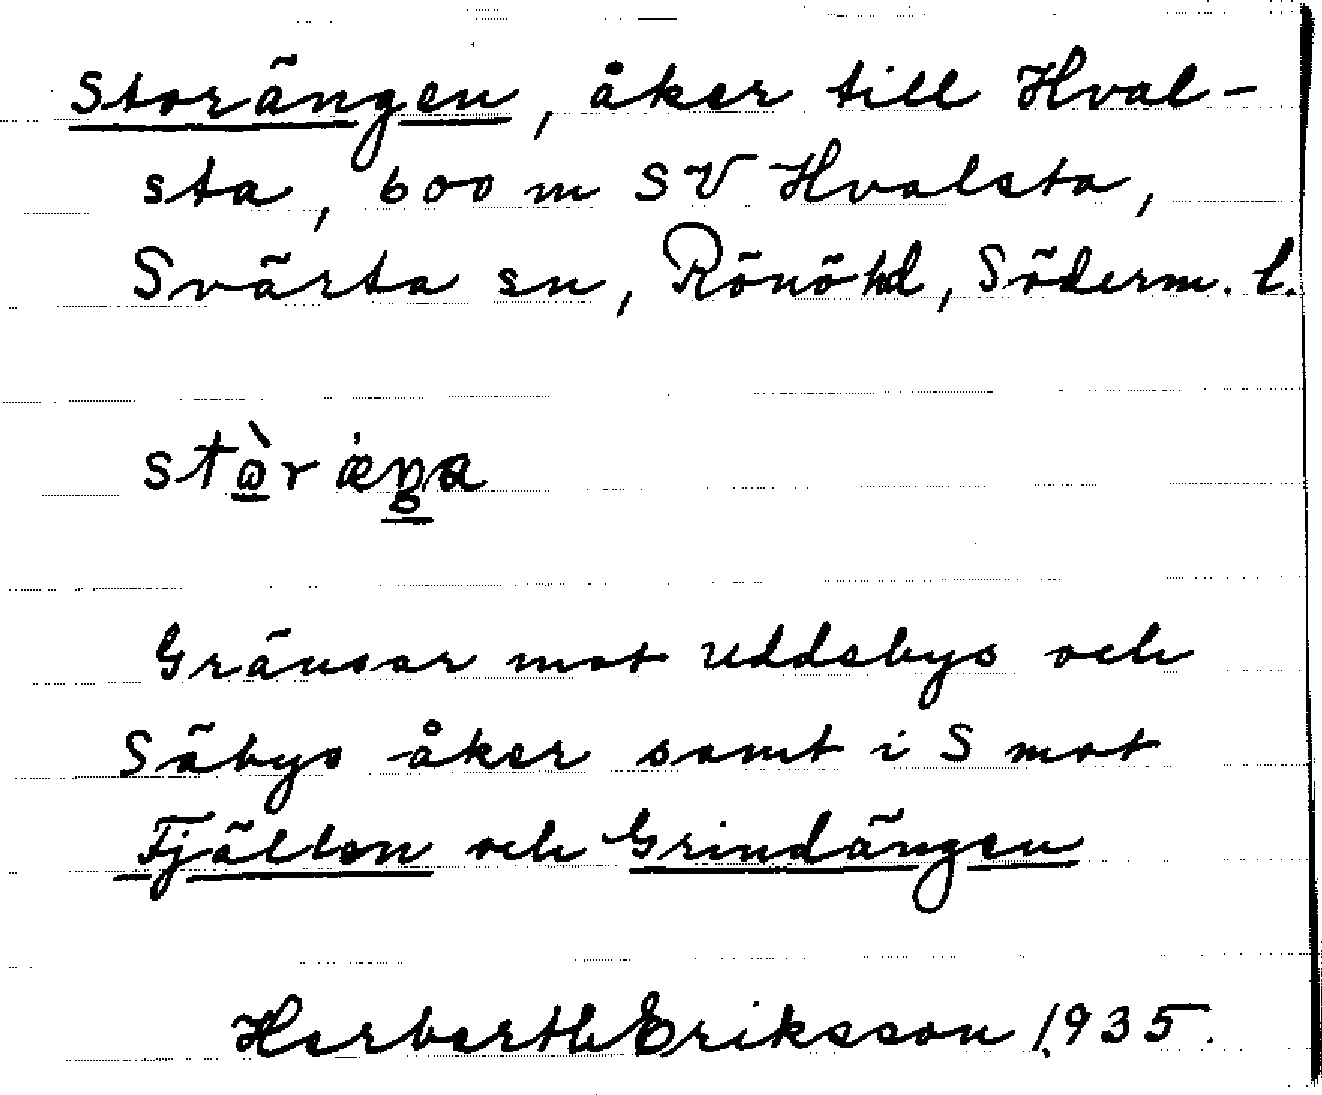 Storängen, åker till Hval-
sta, 600 m SV Hvalsta,
Svärta sn, Rönö hd, Söderm. l.
Gränsar mot Uddebys och
Säbys åker samt i S mot
Fjällen och Grindängen
Herberth Eriksson 1935.